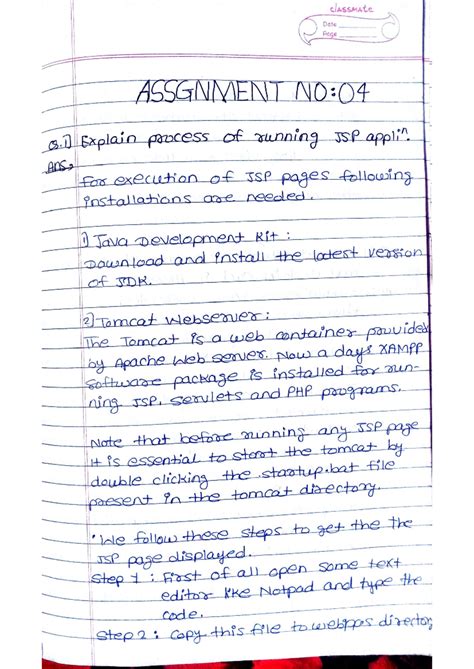 classmate
Date
Page
ASSGNMENT NO:04
Q.1] Explain process of running JSP appliⁿ.
Ans,
For execution of JSP pages following
installations are needed.
1) Java Development Kit :
Download and install the latest version
of JDK.
2) Tomcat Webserver :
The Tomcat is a web container provided
by Apache Web server. Now a days XAMPP
software package is installed for run-
ning JSP, servlets and PHP programs.
Note that before running any JSP page
it is essential to start the tomcat by
double clicking the startup.bat file
present in the tomcat directory.
We follow these steps to get the the
JSP page displayed.
Step 1 : First of all open some text
editor like Notpad and type the
code.
Step 2 : Copy this file to webapps director